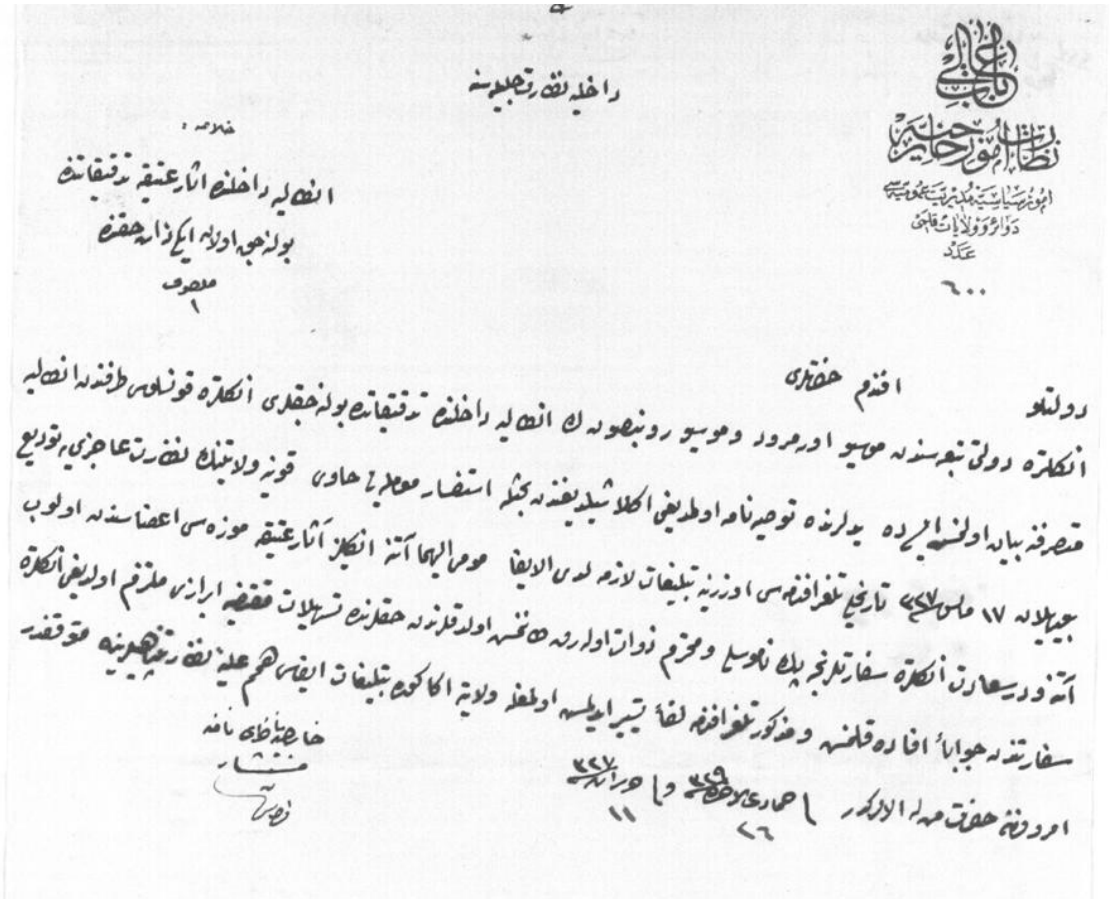 باب عالی
نظارت امور خارجیه
امور سیاسیه مدیریت عمومیه سی
دوائر و ولایات قلمی
عدد
٦٠٠
داخلیه نظارت جلیله سنه
خلاصه :
انطالیه داخلنده آثار عتیقه تدقیقاتنده
بولنه جق اولان ایکی ذات حقنده
ملفوف
١
دولتلو افندم حضرتلری
انکلتره دولتی تبعه سندن موسیو اورمرود و موسیو روبنصونك انطالیه داخلنده تدقیقاتده بوله جقلری انکلتره قونسلوسی طرفندن انطالیه
متصرفنه بیان اولنمش ایسه ده یدلرنده توصیه نامه اولمدیغی اکلاشیلدیغندن بحثله استفسار معامله یی حاوی قونیه ولایتندن نظارت عاجزی یه تودیع
بیوریلان ١٧ مایس ٣٢٧ تاریخلی تلغرافنامه سی اوزرینه تبلیغات لازمه لدی الایفا مومی الیهما آتنه انکلیز آثار عتیقه موزه سی اعضاسندن اولوب
آتنه و درسعادت انکلتره سفارتلرنجه پك ناموسلی و محترم ذواتدن اوله رق طاننمش اولدقلرندن حقلرنده تسهیلات مقتضیه ابرازی ملتزم اولدیغی انکلتره
سفارتندن جوابا افاده قلنمش و مذکور تلغرافنامه لفا تسییر ایدلمش اولمغله ولایته اکا کوره تبلیغات ایفاسی همم علیه نظارتپناهیلرینه متوقفدر
امر و فرمان حضرت من له الامرکدر فی ٢٦ جمادی الاخره ٣٢٩ و فی ١١ حزیران ٣٢٧
خارجیه ناظری نامنه
مستشار